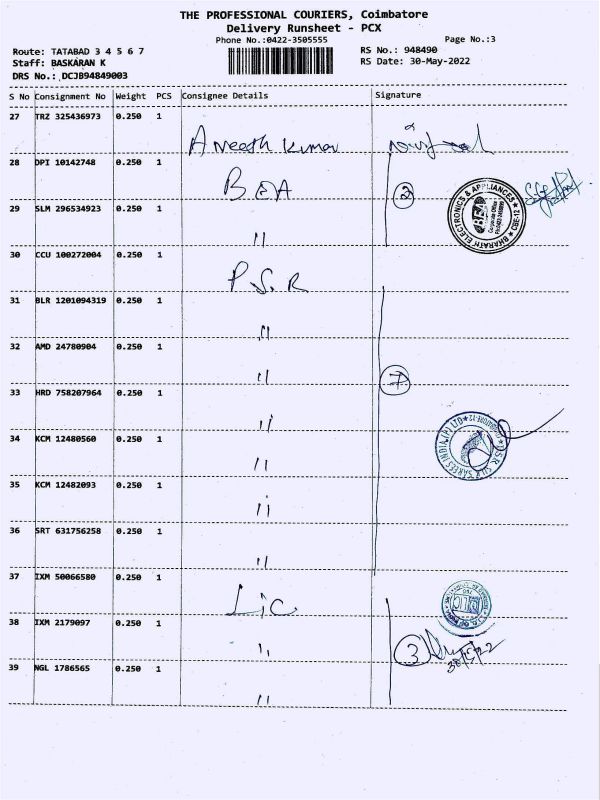 THE PROFESSIONAL COURIERS, Coimbatore
Delivery Runsheet - PCX
Phone No.:0422-3505555 Page No.:3
Route: TATABAD 3 4 5 6 7 RS No.: 948490
Staff: BASKARAN K RS Date: 30-May-2022
DRS No.: DCJB94849003
S No Consignment No Weight PCS Consignee Details Signature
27 TRZ 325436973 0.250 1
28 DPI 10142748 0.250 1 B E A 2
BHARATH ELECTRONICS & APPLIANCES * CBE-12 *
29 SLM 296534923 0.250 1 "
30 CCU 100272004 0.250 1 P.S.R
31 BLR 1201094319 0.250 1 "
32 AMD 24780904 0.250 1 " 7
33 HRD 758207964 0.250 1 "
34 KCM 12480560 0.250 1 "
35 KCM 12482093 0.250 1 "
36 SRT 631756258 0.250 1 "
37 IXM 50066580 0.250 1 LIC
38 IXM 2179097 0.250 1 " 3
39 NGL 1786565 0.250 1 "